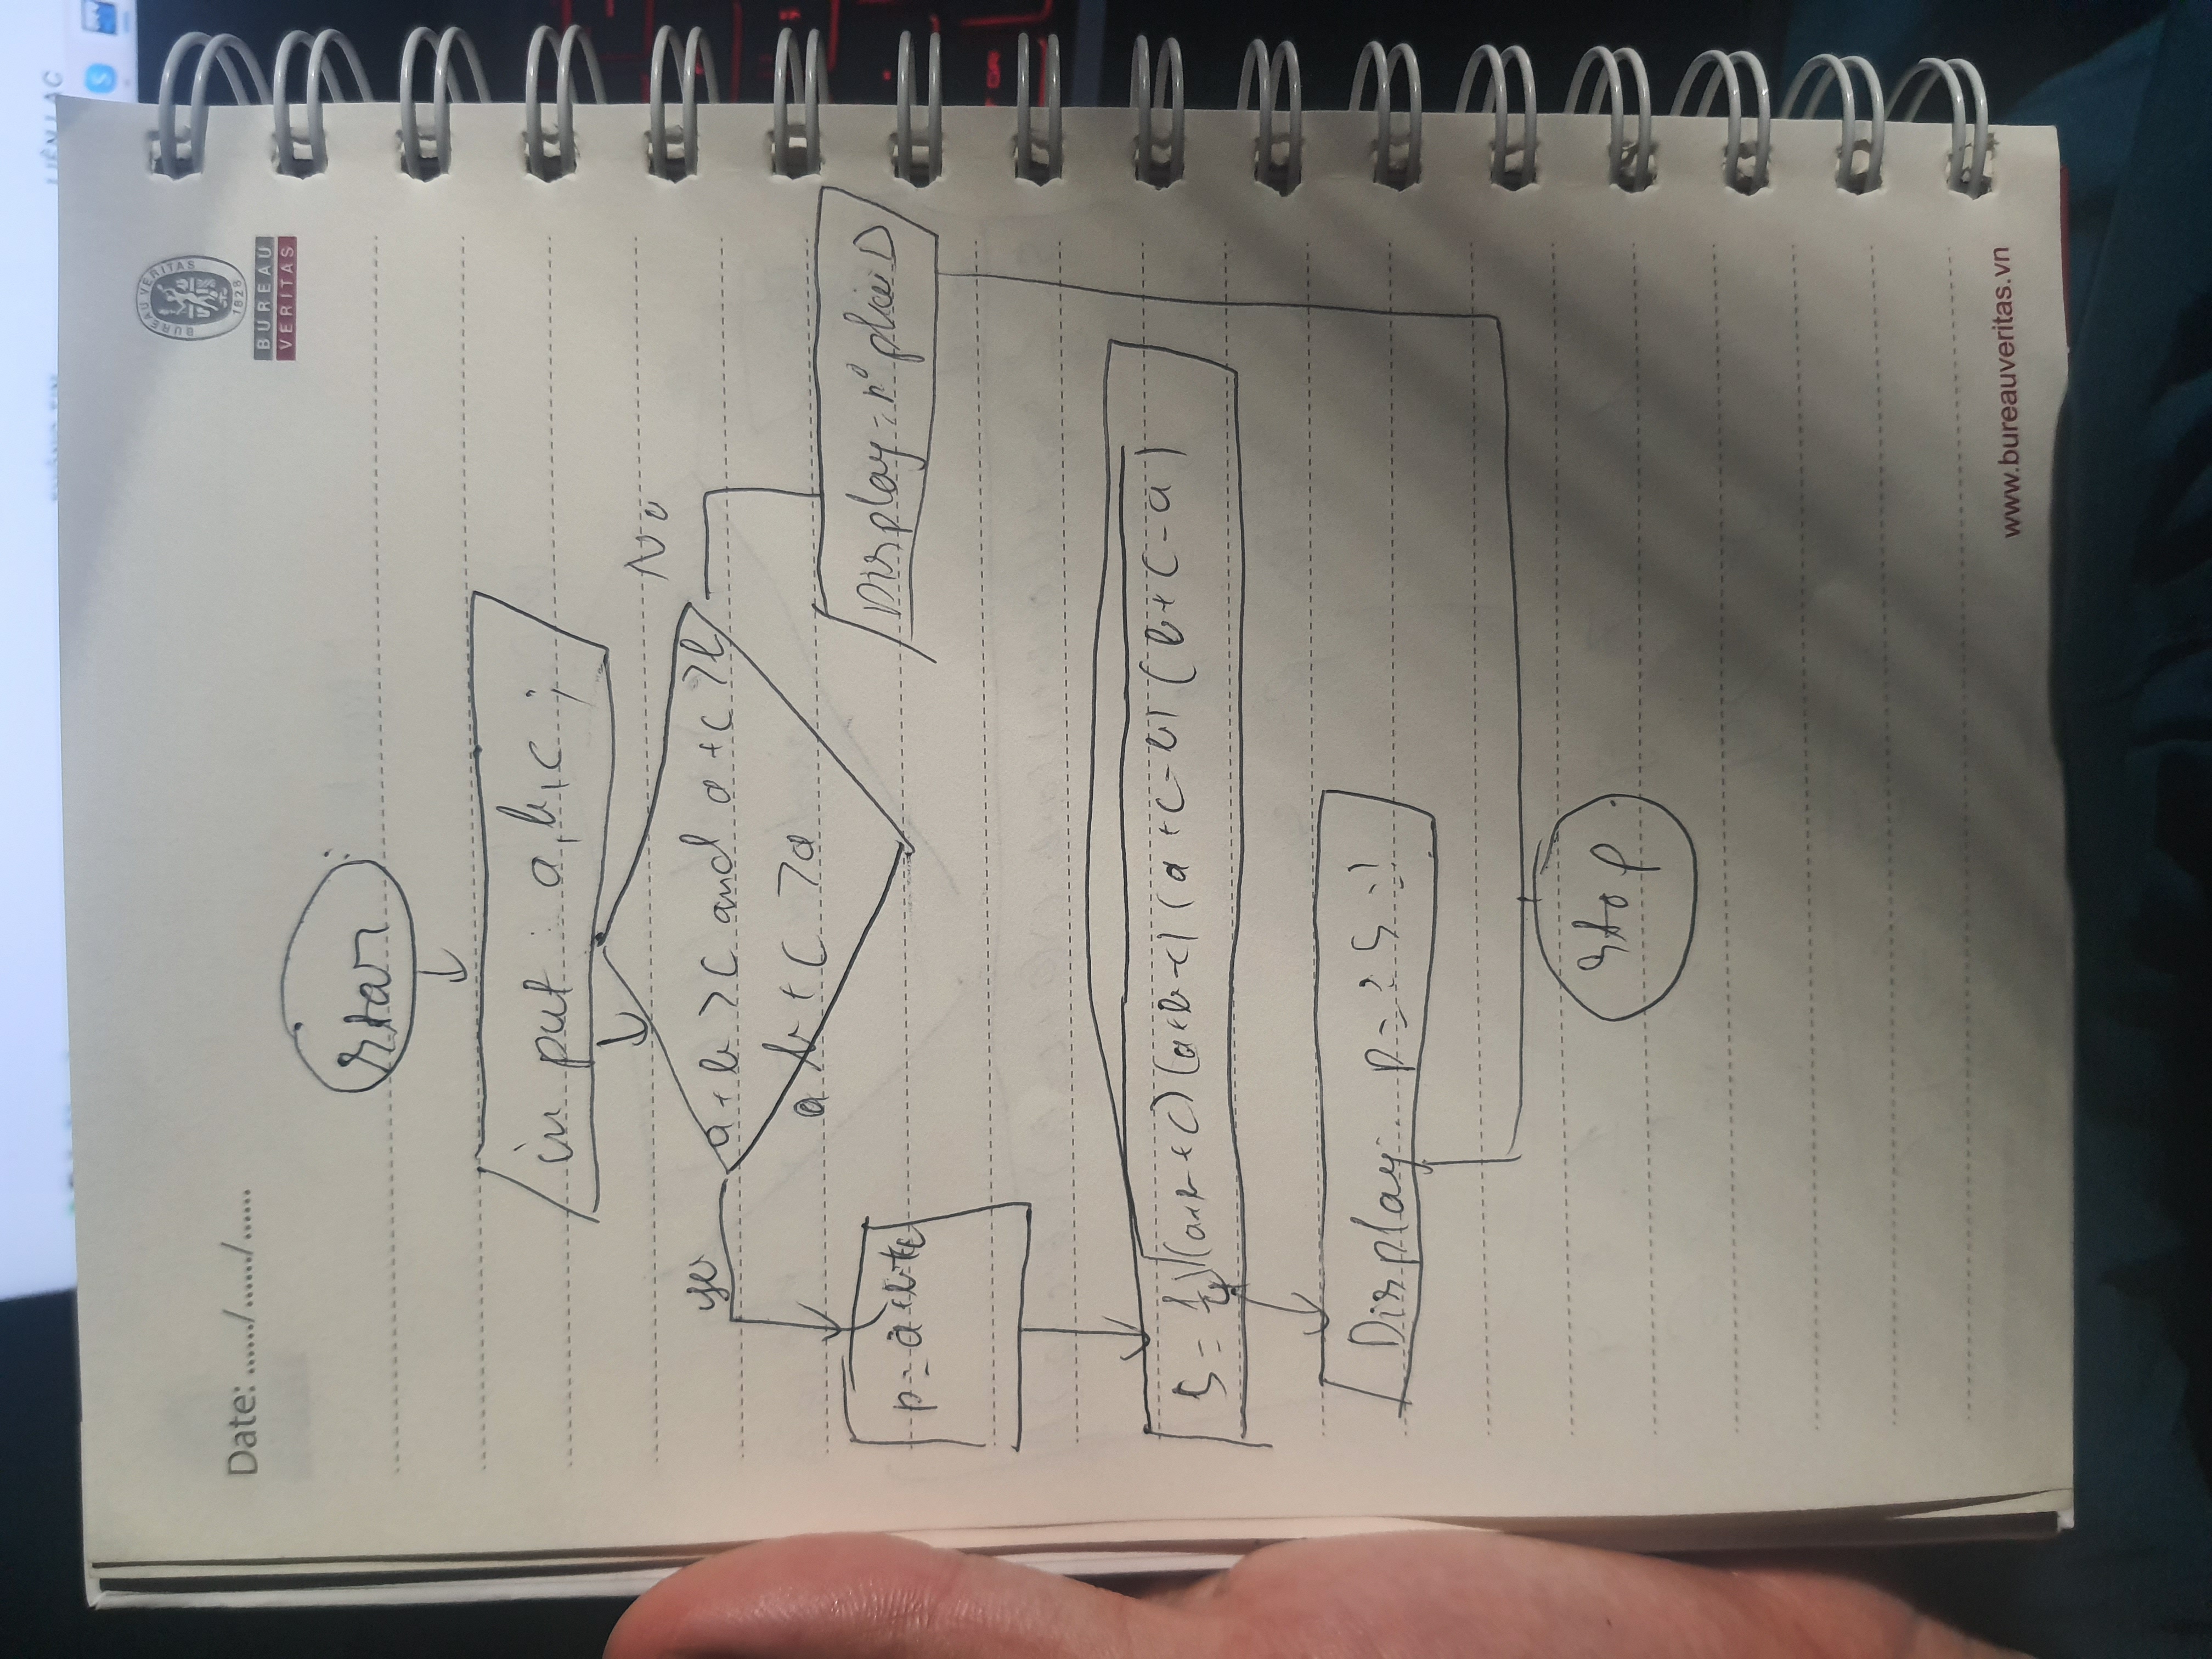 LIÊN LAC
BUREAU VERITAS
1828
BUREAU
VERITAS
Date: ....../....../......
star
in put : a, b, c ;
No
a + b > c and a + c > b
a b + c > a
p = a + b + c
S = 1/4 √(a+b+c) (a+b-c) (a+c-b) (b+c-a)
Display: p = ? S = ?
stop
www.bureauveritas.vn